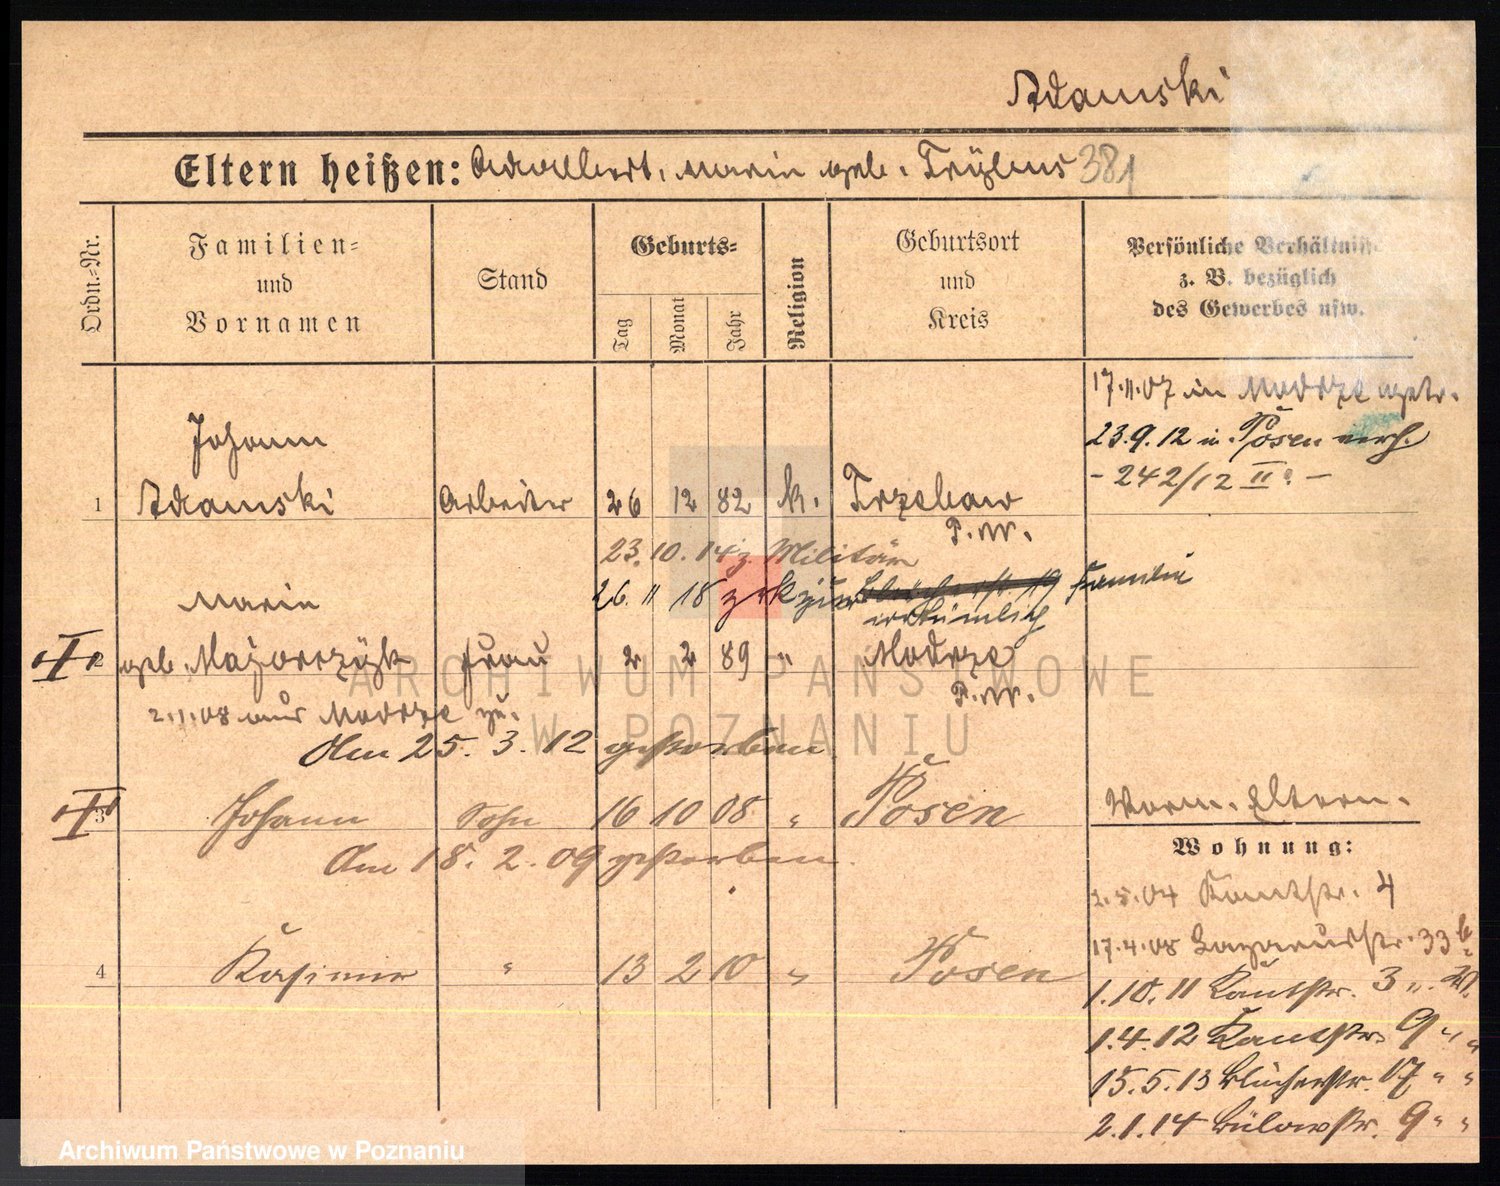 Adamski
Eltern heißen: Adalbert, Maria geb. 381
Ordn.-Nr.
Familien-
und
Vornamen
Stand
Geburts-
Tag
Monat
Jahr
Religion
Geburtsort
und
Kreis
Persönliche Verhältnisse
z. B. bezüglich
des Gewerbes usw.
17.11.07 in Modrze getr.
23.9.12 in Posen verh.
- 242/12 II. -
Johann
1 Adamski Arbeiter 26 12 82 k. Trzebaw
P.W.
23.10.14 z. Militär
26. 11 18 zrk zur Familie
irrtümlich
Maria
2 geb. Frau 2 2 89 " Modrze
P.W.
2.1.08 aus Modrze zu.
Am 25. 3. 12 gestorben
3 Johann Sohn 16 10 08 " Posen
Am 18. 2. 09 gestorben.
4 Kasimir " 13 2 10 " Posen
Vorm. Eltern.
Wohnung:
2.5.04 Kantstr. 4
17.4.08 Lazarusstr. 33b
1.10.11 Kantstr. 3
1.4.12 Kantstr. 9 " "
15.5.13 Blücherstr. 17 " "
2.1.14 Bülowstr. 9 " "
ARCHIWUM PAŃSTWOWE
W POZNANIU
Archiwum Państwowe w Poznaniu